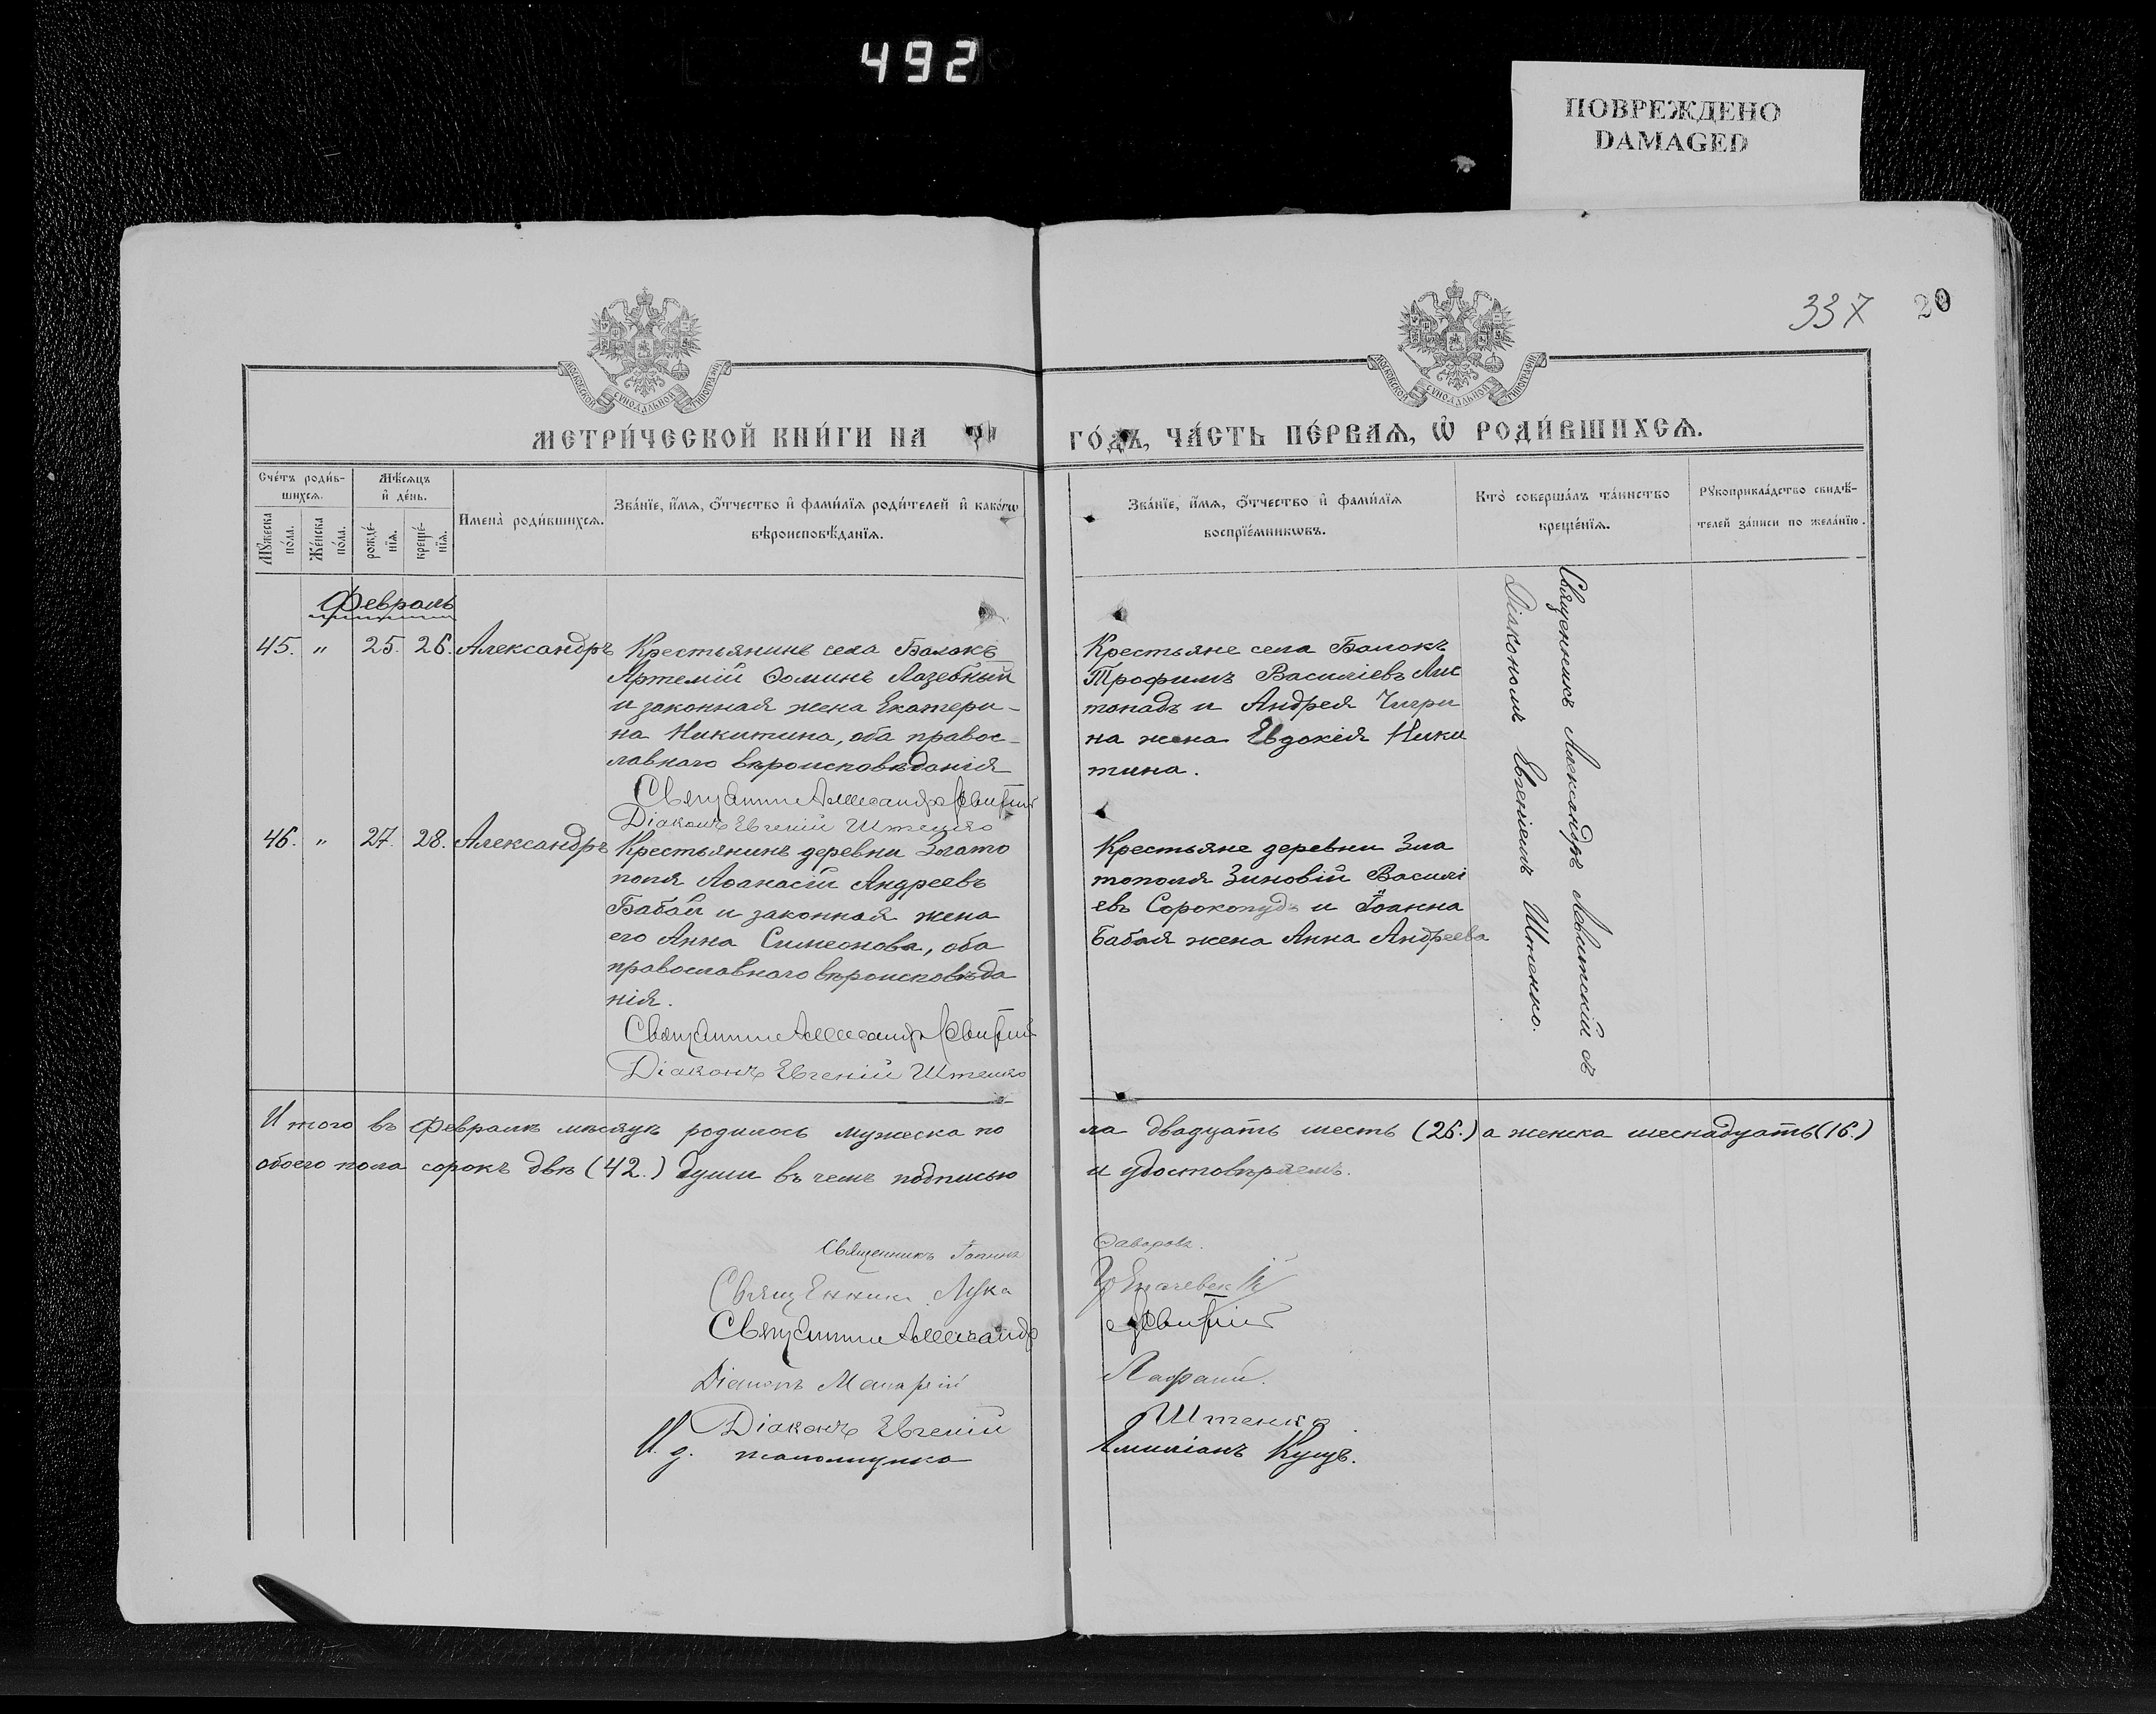 492
ПОВРЕЖДЕНО
DAMAGED
337 20
МОСКОВСКОЙ СѴНОДАЛЬНОЙ ТИПОГРАФІИ
МОСКОВСКОЙ СѴНОДАЛЬНОЙ ТИПОГРАФІИ
МЕТРИ́ЧЕСКОЙ КНИ́ГИ НА
ГО́ДЪ, ЧА́СТЬ ПЕ́РВАѦ, Ѡ҆ РОДИ́ВШИХСѦ.
Сче́тъ роди́в-
шихсѧ.
Мѣ́сѧцъ
и҆ де́нь.
Мꙋ́жеска по́ла.
Же́нска по́ла.
рожде́-
нїѧ.
креще́-
нїѧ.
Имена̀ роди́вшихсѧ.
Зва́нїе, и҆́мѧ, ѻ҆́тчество и҆ фами́лїѧ роди́телей и҆ како́гѡ
вѣроисповѣ́данїѧ.
Зва́нїе, и҆́мѧ, ѻ҆́тчество и҆ фами́лїѧ
воспрїе́мникѡвъ.
Кто̀ соверша́лъ та́инство
креще́нїѧ.
Рꙋкоприкла́дство свидѣ́-
телей за́писи по жела́нїю.
Февраль
45. " 25. 26. Александръ
Крестьянинъ села Балокъ
Артемій Ѳоминъ Лазебный
и законная жена Екатери-
на Никитина, оба правос-
лавнаго вѣроисповѣданія
Священникъ Александръ Левитскій
Діаконъ Евгеній Штенко
Крестьяне села Балокъ
Трофимъ Василіевъ Лис
топадъ и Андрея Чигри
на жена Евдокія Ники
тина.
Священникъ Александръ Левитскій съ
Діакономъ Евгеніемъ Штенко.
46. " 27. 28. Александръ
Крестьянинъ деревни Злато
поля Аѳанасій Андреевъ
Бабай и законная жена
его Анна Симеонова, оба
православнаго вѣроисповѣда
нія.
Священникъ Александръ Левитскій
Діаконъ Евгеній Штенко
Крестьяне деревни Зла
тополя Зиновій Василі
евъ Сорокопудъ и Іоанна
Бабая жена Анна Андреева
Итого въ Февралѣ мѣсяцѣ родилось мужеска по
ла двадцать шесть (26.) а женска шеснадцать (16.)
обоего пола сорокъ двѣ (42.) души въ чемъ подписью
и удостовѣряемъ.
Священникъ Іоаннъ
Священникъ Лука
Священникъ Александръ Левитскій
Діаконъ Макарій
Діаконъ Евгеній Штенко
И. д. псаломщика Емиліанъ Кущъ.